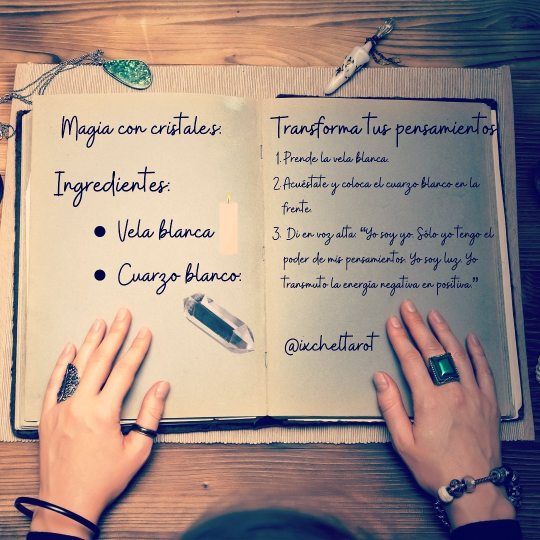 Magia con cristales:
Ingredientes:
● Vela blanca
● Cuarzo blanco:
Transforma tus pensamientos
1. Prende la vela blanca.
2. Acuéstate y coloca el cuarzo blanco en la
frente.
3. Di en voz alta: “Yo soy yo. Sólo yo tengo el
poder de mis pensamientos. Yo soy luz. Yo
transmuto la energia negativa en positiva.”
@ixcheltarot